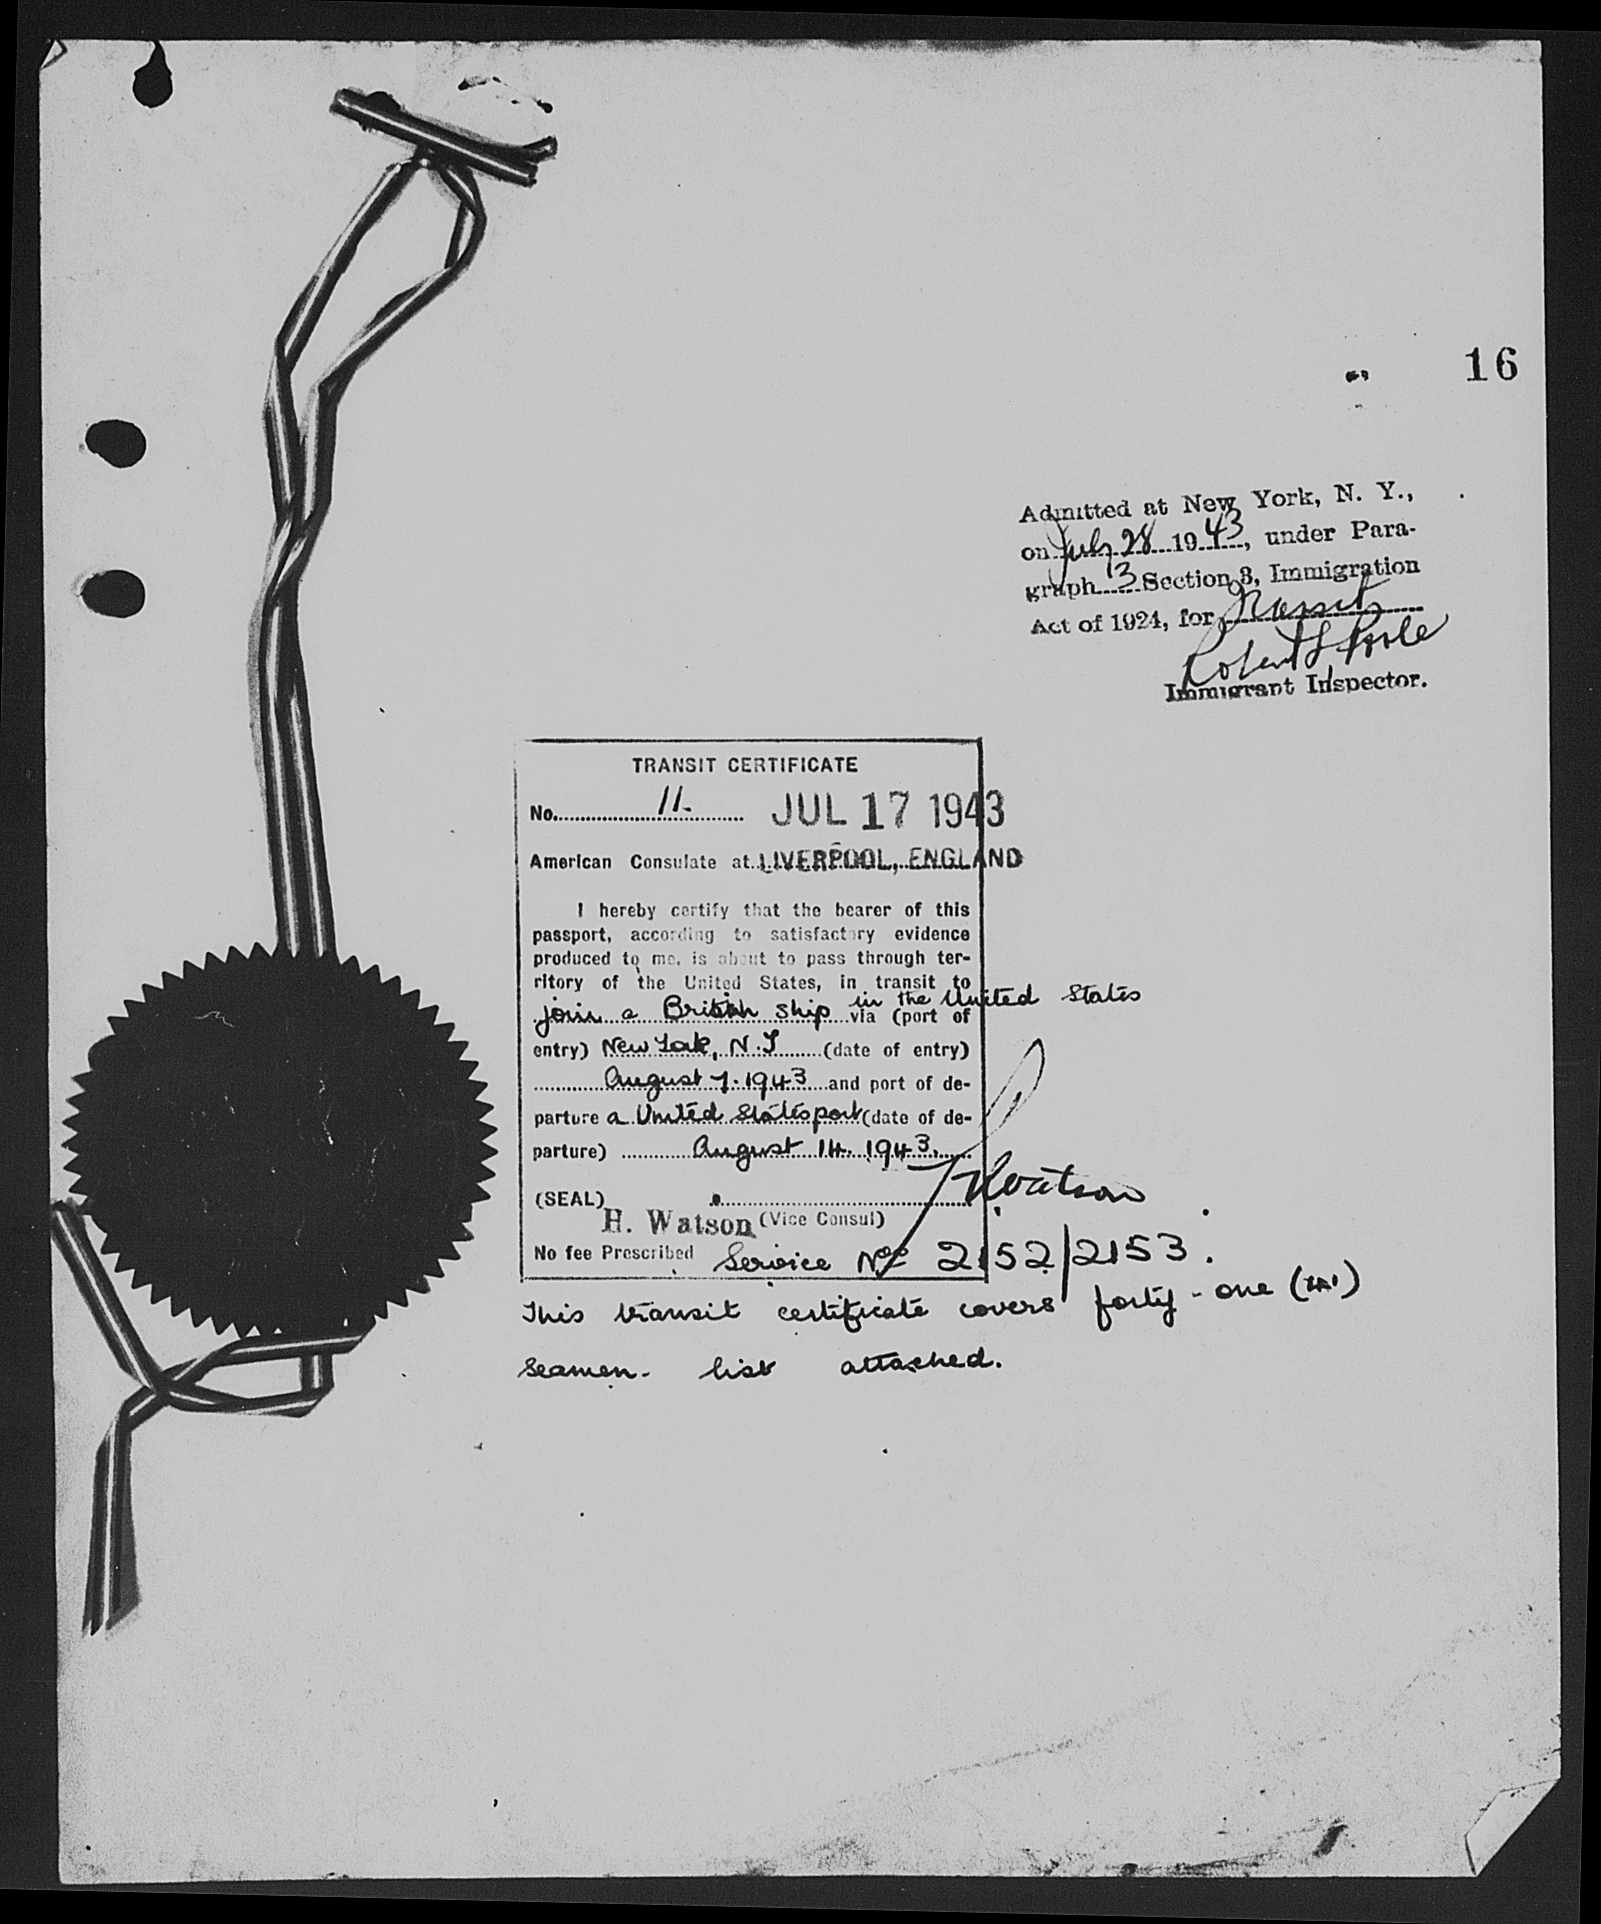 16
Admitted at New York, N. Y.,
on July 28 1943, under Para-
graph 3 Section 3, Immigration
Act of 1924, for Transit
Immigrant Inspector.
TRANSIT CERTIFICATE
No. 11. JUL 17 1943
American Consulate at LIVERPOOL, ENGLAND
I hereby certify that the bearer of this
passport, according to satisfactory evidence
produced to me, is about to pass through ter-
ritory of the United States, in transit to
join a British ship in the United States via (port of
entry) New York, N.Y (date of entry)
August 7. 1943 and port of de-
parture a United States port (date of de-
parture) August 14. 1943.
(SEAL) H Watson
H. Watson (Vice Consul)
No fee Prescribed Service Nos 2152/2153.
This transit certificate covers forty-one (41)
seamen. list attached.